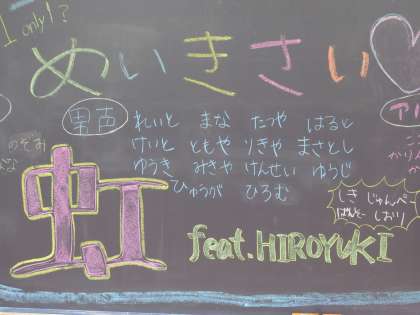 1 only!?
めいきさい♡
男声
れいと まな たつや はると
けいと ともや りきや まさとし
ゆうき みきや けんせい ゆうじ
ひゅうが ひろむ
のぞみ
虹
feat.HIROYUKI
しき じゅんぺ
ばんそー しおり